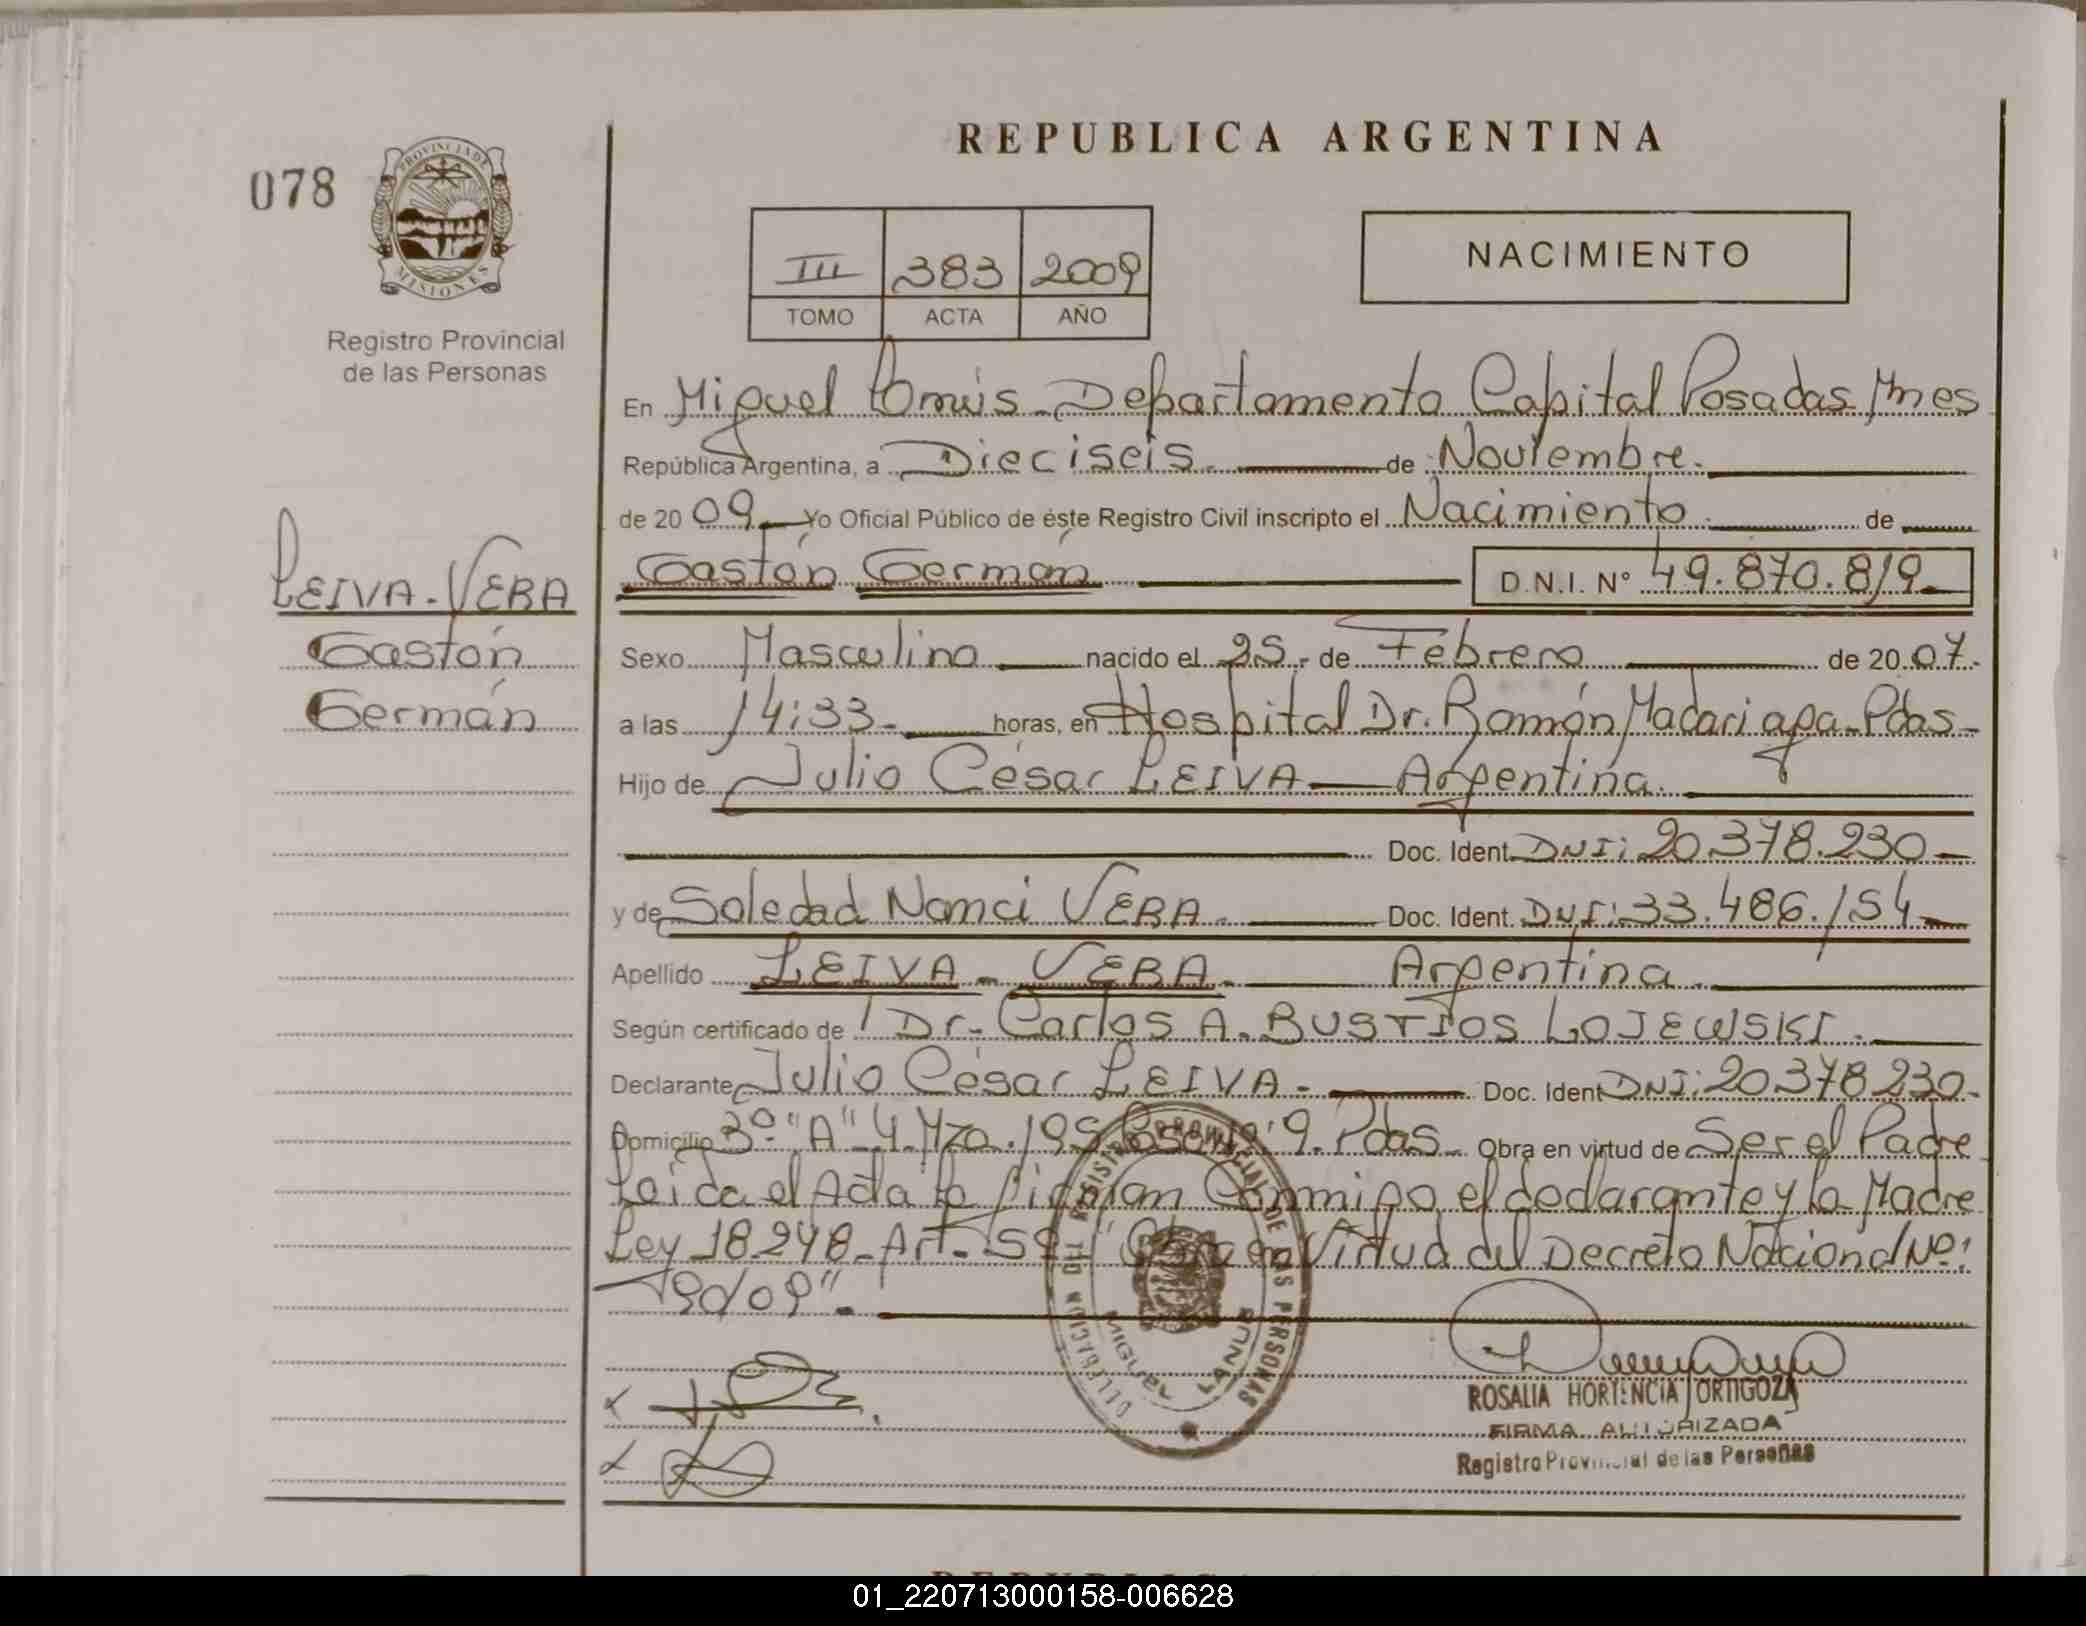 REPUBLICA ARGENTINA
078
PROVINCIA DE
MISIONES
Registro Provincial
de las Personas
III 383 2009
TOMO ACTA AÑO
NACIMIENTO
En Miguel Lanús - Departamento Capital Posadas Mnes
República Argentina, a Dieciseis. de Noviembre.
de 2009. Yo Oficial Público de éste Registro Civil inscripto el Nacimiento de
Gastón Germán D.N.I. Nº 49.870.819
LEIVA - VERA
Gastón
Germán
Sexo Masculino nacido el 25 - de Febrero de 2007.
a las 14:33 - horas, en Hospital Dr. Ramón Madariaga - Pdas -
Hijo de Julio César LEIVA Argentina.
Doc. Ident. DNI: 20.378.230
y de Soledad Nanci VERA. Doc. Ident. DNI: 33.486.154
Apellido LEIVA - VERA. Argentina.
Según certificado de Dr. Carlos A. BUSTIOS LOJEWSKI.
Declarante Julio César LEIVA - Doc. Ident DNI: 20378230.
Domicilio 3º "A" 4 Mza. 195 9. Pdas - Obra en virtud de Ser el Padre
Leida el Acta la firman Conmigo el declarante y la Madre
Ley 18248 - Art - 5º "Obra en Virtud del Decreto Nacional Nº:
90/09".
REGISTRO PROVINCIAL DE LAS PERSONAS
DELEGACION
MIGUEL LANUS
ROSALIA HORTENCIA ORTIGOZA
FIRMA AUTORIZADA
Registro Provincial de las Personas
01_220713000158-006628